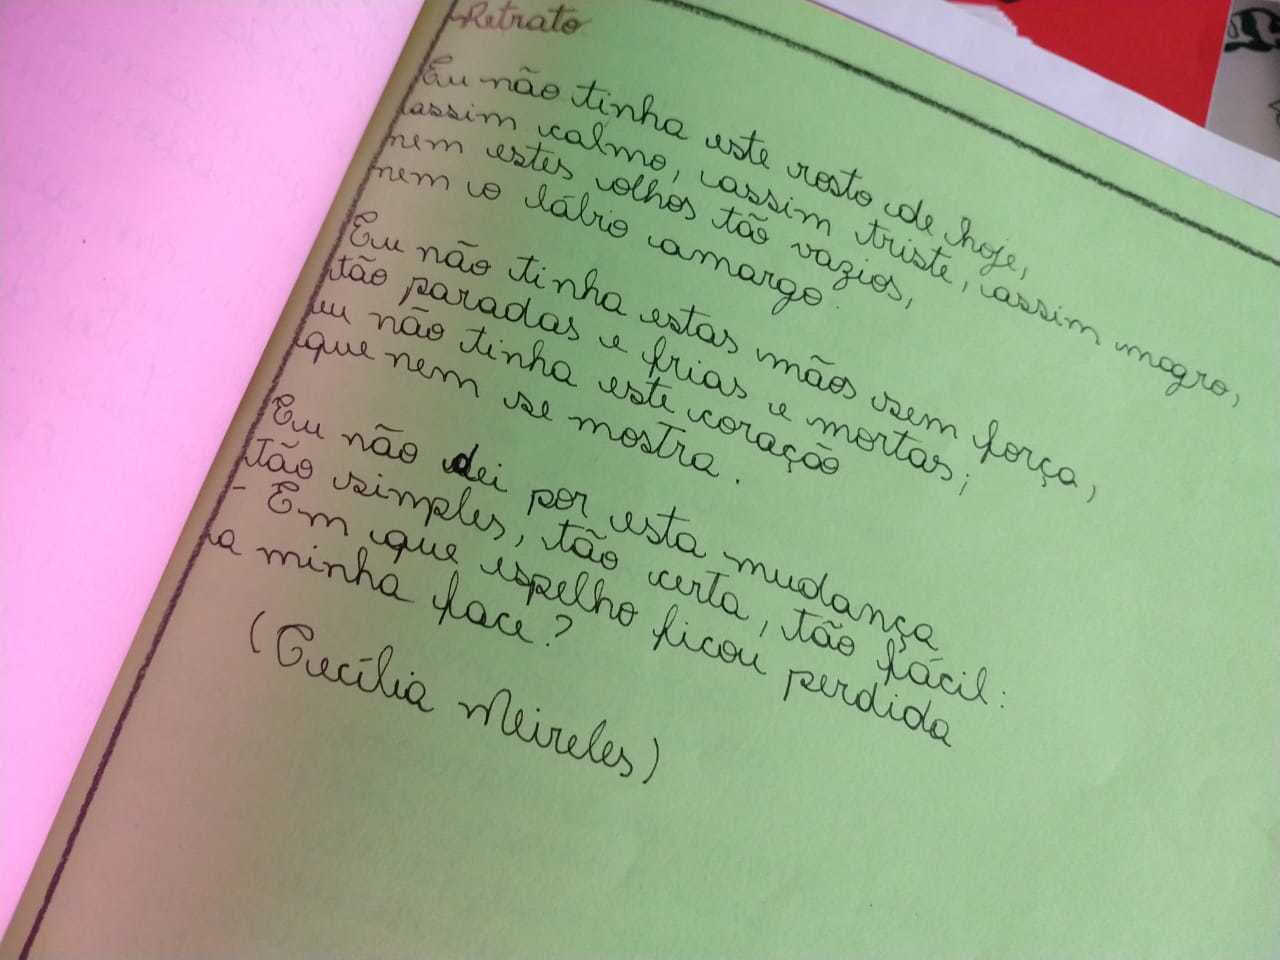 Retrato
Eu não tinha este rosto de hoje,
assim calmo, assim triste, assim magro,
nem estes olhos tão vazios,
nem o lábio amargo.
Eu não tinha estas mãos sem força,
tão paradas e frias e mortas;
eu não tinha este coração
que nem se mostra.
Eu não dei por esta mudança
tão simples, tão certa, tão fácil:
- Em que espelho ficou perdida
a minha face?
(Cecília Meireles)